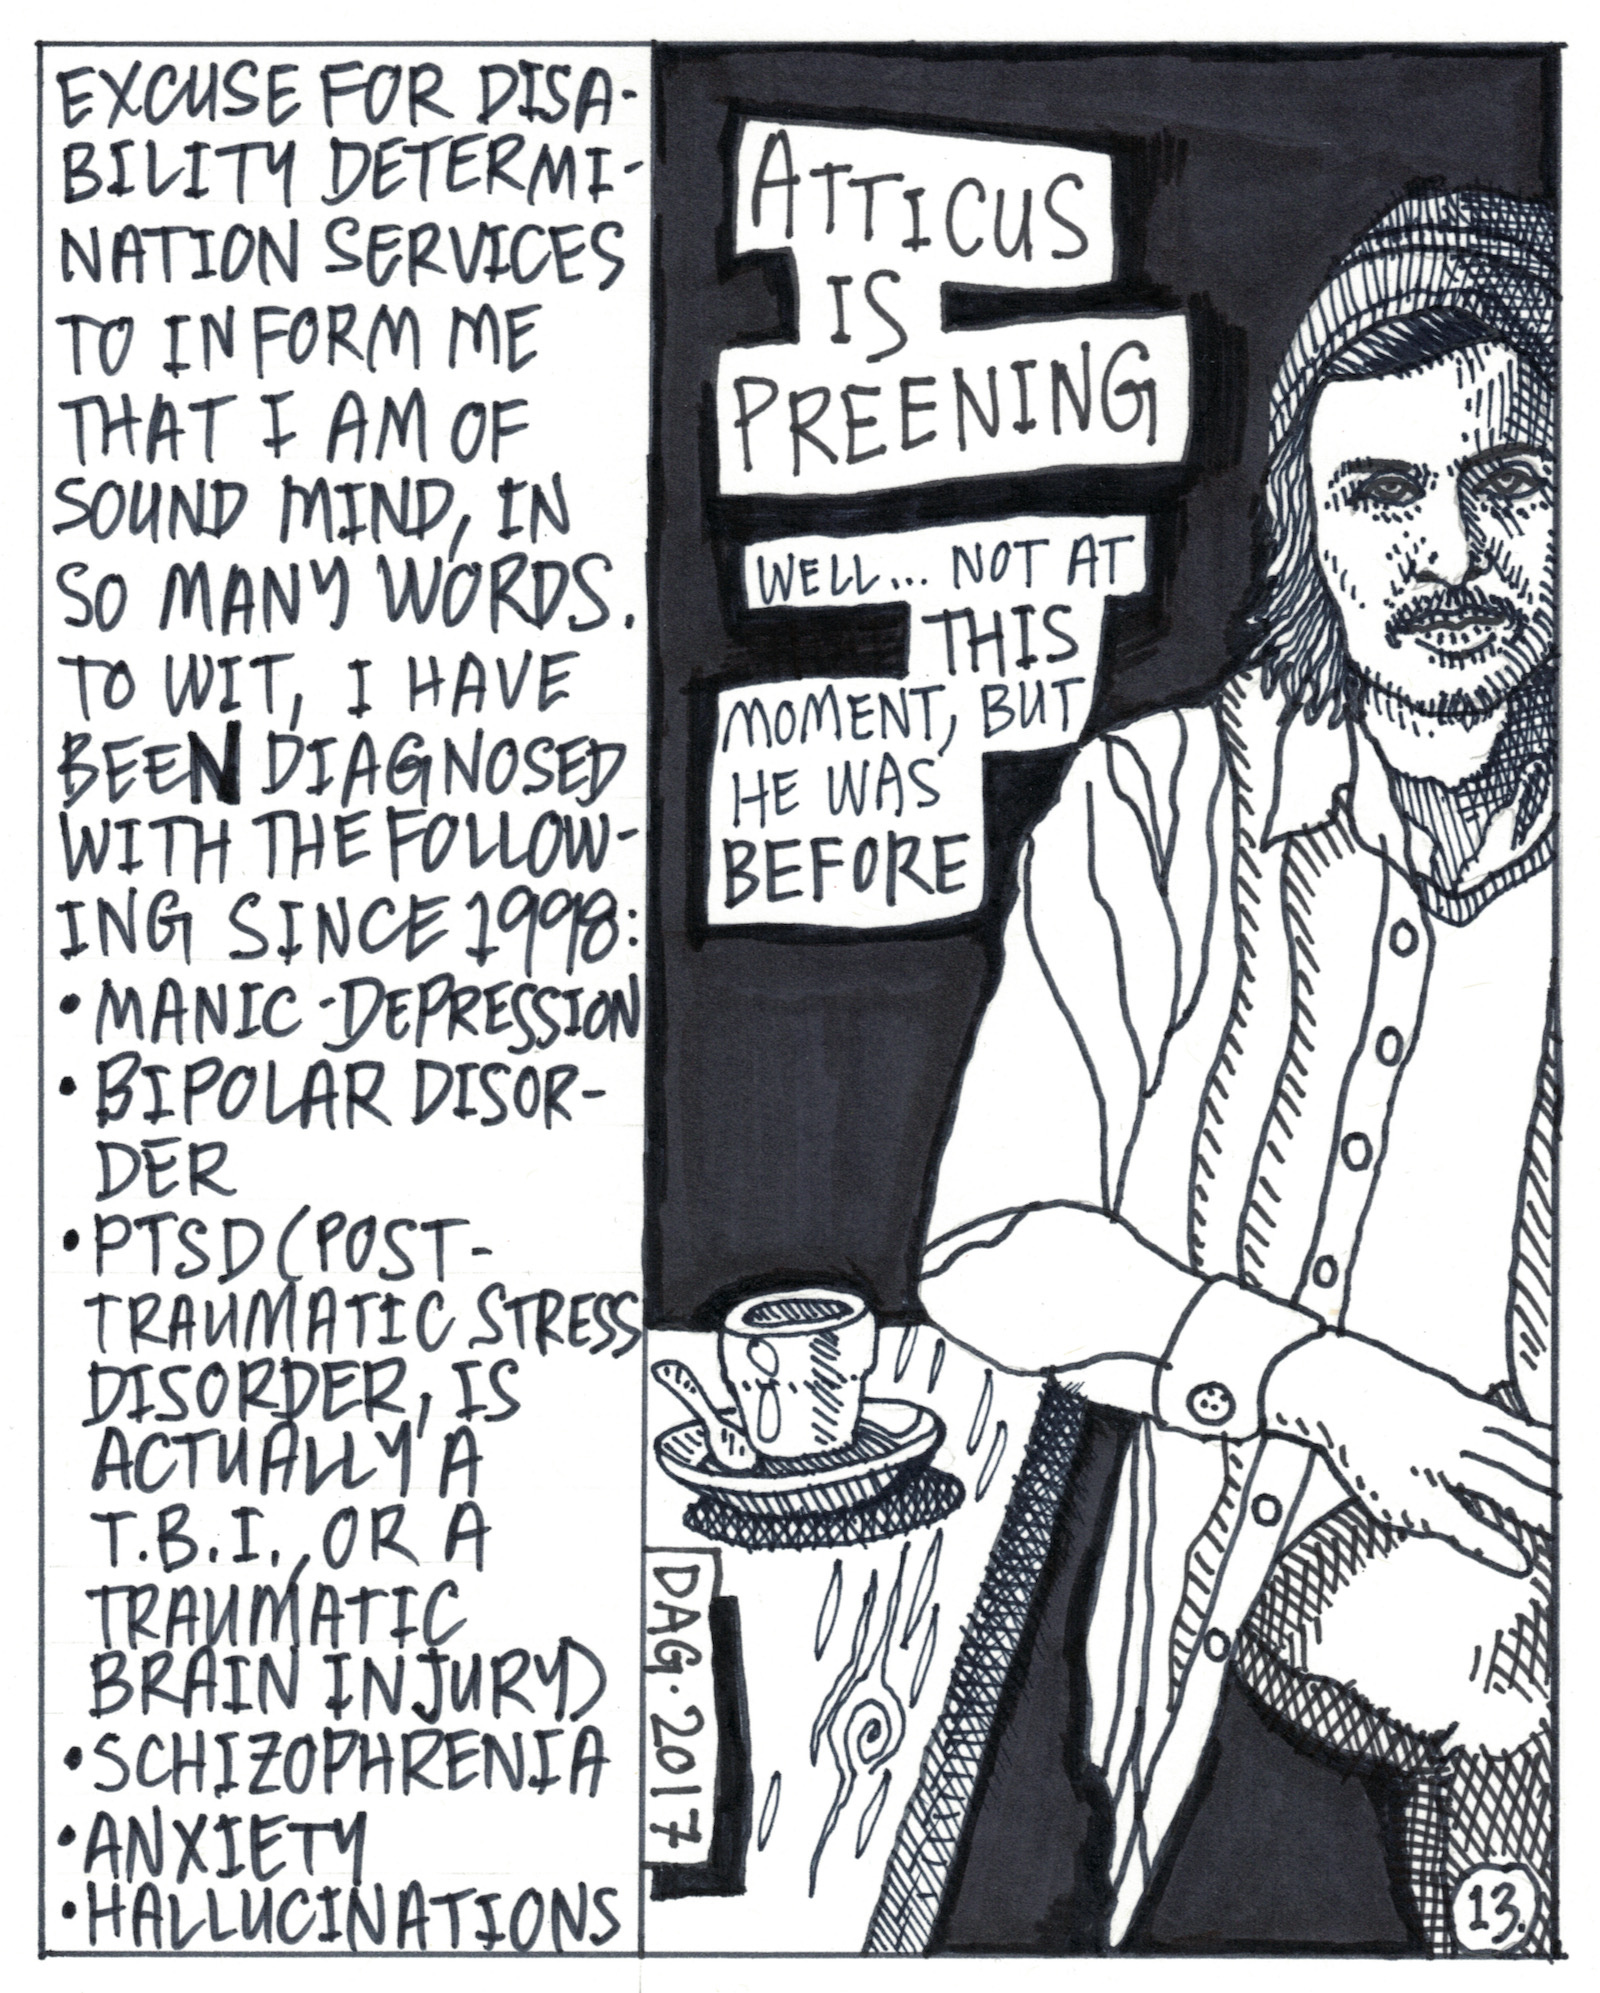 EXCUSE FOR DISA-
BILITY DETERMI-
NATION SERVICES
TO INFORM ME
THAT I AM OF
SOUND MIND, IN
SO MANY WORDS.
TO WIT, I HAVE
BEEN DIAGNOSED
WITH THE FOLLOW-
ING SINCE 1998:
• MANIC-DEPRESSION
• BIPOLAR DISOR-
DER
• PTSD (POST-
TRAUMATIC STRESS
DISORDER, IS
ACTUALLY A
T.B.I., OR A
TRAUMATIC
BRAIN INJURY)
• SCHIZOPHRENIA
• ANXIETY
• HALLUCINATIONS
ATTICUS
IS
PREENING
WELL... NOT AT
THIS
MOMENT, BUT
HE WAS
BEFORE
DAG. 2017
13.